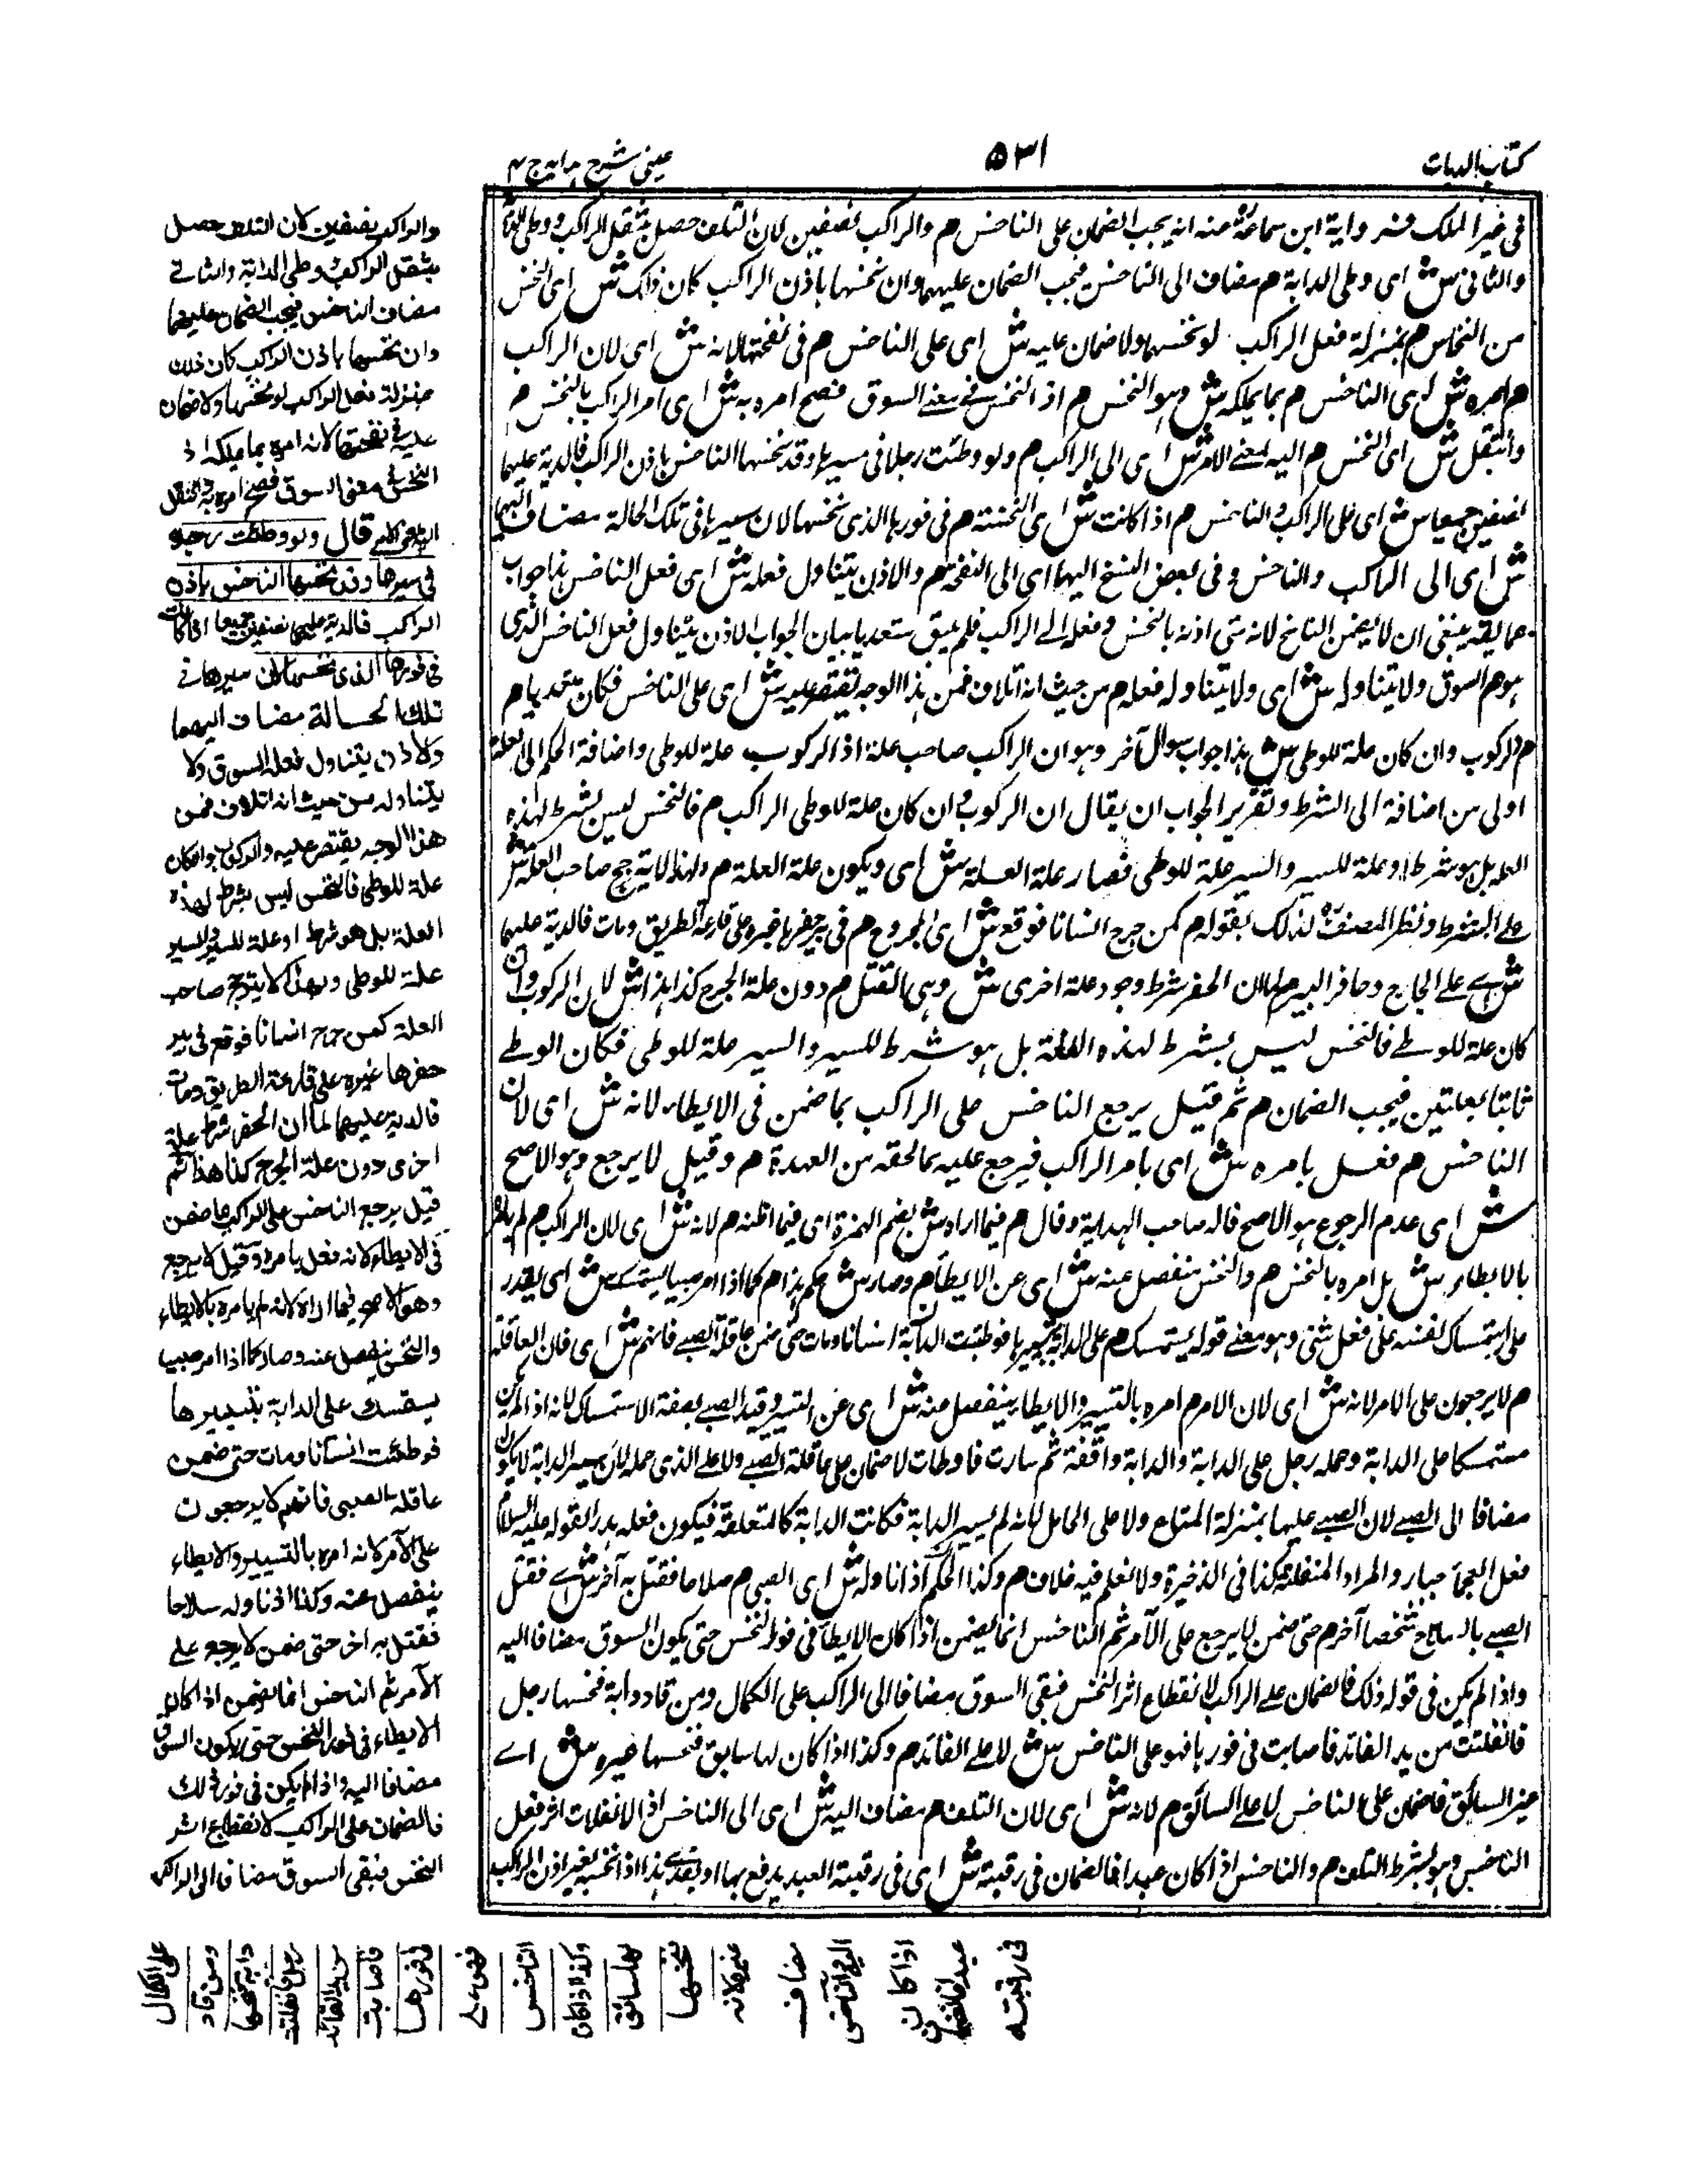 كتاب الديات
٥٣١
عينى شرح هدايه ج ٤
فى غير الملك وفى رواية ابن سماعة منه انه يجب الضمان على الناخس م والراكب نصفين لان التلف حصل بثقل الراكب ووطى الدابة
والثانى ش اى وطى الدابة م مضاف الى الناخس فيجب الضمان عليهما وان نخسها باذن الراكب كان ذلك ش اى النخس
من النخاس م بمنزلة فعل الراكب لو نخسها ولا ضمان عليه ش اى على الناخس م فى نفحتها لانه ش اى لان الراكب
م امره ش اى الناخس م بما يملكه ش وهو النخس م اذ النخس فى معنى السوق فصح امره به ش اى امر الراكب بالنخس م
وانتقل ش اى النخس م اليه لمعنى الامر ش اى الى الراكب م ولو وطئت رجلا فى سيرها وقد نخسها الناخس باذن الراكب فالدية عليهما
نصفين جميعا ش اى على الراكب والناخس م اذا كانت ش اى النخسة م فى فورها الذى نخسها لان سيرها فى تلك الحالة مضاف اليهما
ش اى الى الراكب والناخس وفى بعض النسخ اليها اى الى النفحة م والاذن يتناول فعله ش اى فعل الناخس هذا جواب
عما يقال ينبغى ان لا يضمن الناخس لانه متى اذنه بالنخس وفعله الى الراكب فلم يبق متعديا بيان الجواب الاذن يتناول فعل الناخس الذى
هو م السوق ولا يتناوله ش اى ولا يتناوله فعله م من حيث انه اتلاف فمن هذا الوجه يقتصر عليه ش اى على الناخس فكان متعديا م
م والركوب وان كان علة للوطى ش هذا جواب سوال آخر وهو ان الراكب صاحب علة اذ الركوب علة للوطى واضافة الحكم الى العلة
اولى من اضافة الى الشرط وتقرير الجواب ان يقال ان الركوب وان كان علة للوطى الراكب م فالنخس ليس بشرط لهذه
العلة بل هو شرط او علة للسير والسير علة للوطى فصار علة العلة ش اى ويكون علة العلة م ولهذا لا يترجح صاحب العلة ش
على الشرط ونظر المصنف لذلك بقوله م كمن جرح انسانا فوقع ش اى المجروح م فى بير حفرها غيره على قارعة الطريق ومات فالدية عليهما
ش اى على الجارح وحافر البير م لما ان الحفر شرط وجود علة اخرى ش وهى الثقل م دون علة الجرح كذا هذا ش لان الركوب وان
كان علة للوطى فالنخس ليس بشرط لهذه العلة بل هو شرط للسير والسير علة للوطى فكان الوطى
ثابتا بعلتين فيجب الضمان م ثم قيل يرجع الناخس على الراكب بما ضمن فى الايطاء لانه ش اى لان
الناخس م فعل بامره ش اى بامر الراكب فيرجع عليه بما لحقه من العهدة م وقيل لا يرجع وهو الاصح
ش اى عدم الرجوع هو الاصح قاله صاحب الهداية وقال م فيما اراه ش بضم الهمزة اى فيما اظنه م لانه ش اى لان الراكب م لم يامره
بالايطاء ش بل امره بالنخس م والنخس ينفصل عنه ش اى عن الايطاء م وصار ش حكم هذا م كما اذا امر صبيا يستمسك ش اى يقدر
على استمساك نفسه على فعل شئى وهو معنى قوله يستمسك م على الدابة بتسييرها فوطئت الدابة انسانا ومات حتى ضمن عاقلة الصبى فانهم ش اى فان العاقلة
م لا يرجعون على الامر لانه ش اى لان الامر م امره بالتسيير والايطاء ينفصل عنه ش اى عن التسيير وقيد الصبى بصفة الاستمساك لانه اذا لم يكن
مستمسكا على الدابة وحمله رجل على الدابة والدابة واقفة ثم سارت فاوطات لا ضمان على عاقلة الصبى ولا على الذى حمله لان سير الدابة لا يكون
مضافا الى الصبى لان الصبى عليها بمنزلة المتاع ولا على الحامل لانه لم يسير الدابة فكانت الدابة كالمتعلقة فيكون فعله هدرا لقوله عليه السلام
فعل العجماء جبار والمراد المنفلتة هكذا فى الذخيرة ولا نعلم فيه خلاف م وكذا الحكم اذا ناوله ش اى الصبى م سلاحا فقتل به آخر ش اى فقتل
الصبى بالسلاح شخصا آخر م حتى ضمن لا يرجع على الآمر ثم الناخس انما يضمن اذا كان الايطاء فى فور النخس حتى يكون السوق مضافا اليه
واذا لم يكن فى قوله ذلك فالضمان على الراكب لانقطاع اثر النخس فبقى السوق مضافا الى الراكب على الكمال ومن قاد دابة فنخسها رجل
فانفلتت من يد القائد فاصابت فى فورها فهو على الناخس ش لا على القائد م وكذا اذا كان لها سايق فنخسها غيره ش اى
غير السائق فالضمان على الناخس لا على السائق م لانه ش اى لان التلف م مضاف اليه ش اى الى الناخس اذ الانفلات اثر فعل
الناخس وهو شرط التلف م والناخس اذا كان عبدا فالضمان فى رقبته ش اى فى رقبة العبد يدفع بها او يفدى هذا اذا نخسه بغير اذن الراكب
والراكب نصفين كان التلف حصل
بثقل الراكب ووطى الدابة والثانى
مضاف الناخس فيجب الضمان عليهما
وان نخسها باذن الراكب كان ذلك
بمنزلة فعل الراكب لو نخسها ولا ضمان
عليه فى نفحتها لانه امره بما يملكه اذ
النخس فى معنى السوق فصح امره به وانتقل
اليه لمعنى الامر قال ولو وطئت رجلا
فى سيرها وقد نخسها الناخس باذن
الراكب فالدية عليهما نصفين جميعا اذا كانت
فى فورها الذى نخسها لان سيرها فى
تلك الحالة مضاف اليهما
والاذن يتناول فعله السوق ولا
يتناوله من حيث انه اتلاف فمن
هذا الوجه يقتصر عليه والركوب وان كان
علة للوطى فالنخس ليس بشرط لهذه
العلة بل هو شرط او علة للسير والسير
علة للوطى وبهذا لا يترجح صاحب
العلة كمن جرح انسانا فوقع فى بير
حفرها غيره على قارعة الطريق ومات
فالدية عليهما لما ان الحفر شرط علة
اخرى دون علة الجرح كذا هذا ثم
قيل يرجع الناخس على الراكب بما ضمن
فى الايطاء لانه فعل بامره وقيل لا يرجع
وهو الاصح فيما اراه لانه لم يامره بالايطاء
والنخس ينفصل عنه وصار كما اذا امر صبيا
يستمسك على الدابة بتسييرها
فوطئت انسانا ومات حتى ضمن
عاقلة الصبى فانهم لا يرجعون
على الآمر لانه امره بالتسيير والايطاء
ينفصل عنه وكذا اذا ناوله سلاحا
فقتل به اخر حتى ضمن لا يرجع على
الآمر ثم الناخس انما يضمن اذا كان
الايطاء فى فور النخس حتى يكون السوق
مضافا اليه واذا لم يكن فى فور ذلك
فالضمان على الراكب لانقطاع اثر
النخس فبقى السوق مضافا الى الراكب
على الكمال
ومن قاد
دابة فنخسها
رجل فانفلتت
من يد القائد
فاصابت
فى فورها
فهو على
الناخس
وكذا اذا كان
لها سائق
فنخسها
غيره لانه
مضاف
اليه والناخس
اذا كان
عبدا فالضمان
فى رقبته